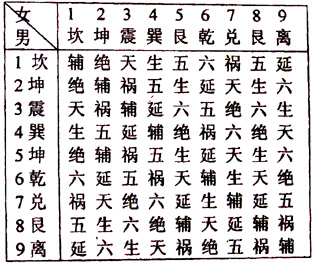 女 1 2 3 4 5 6 7 8 9
男 坎 坤 震 巽 艮 乾 兑 艮 离
1 坎 辅 绝 天 生 五 六 祸 五 延
2 坤 绝 辅 祸 五 生 延 天 生 六
3 震 天 祸 辅 延 六 五 绝 六 生
4 巽 生 五 延 辅 绝 祸 六 绝 天
5 坤 绝 辅 祸 五 生 延 天 生 六
6 乾 六 延 五 祸 天 辅 生 天 绝
7 兑 祸 天 绝 六 延 生 辅 延 五
8 艮 五 生 六 绝 辅 天 延 辅 祸
9 离 延 六 生 天 祸 绝 五 祸 辅